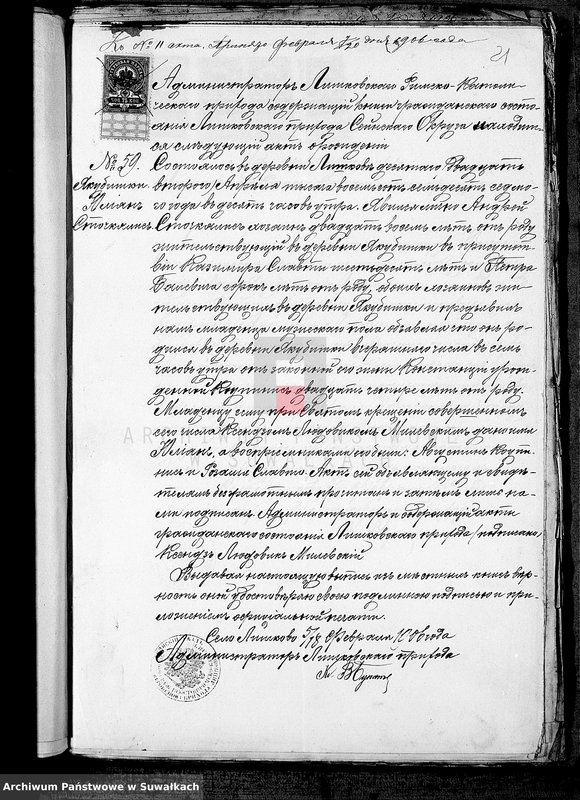 Къ № 11 акта. Аринязо Февраля 7/20 дня 1906 года
21
Администраторъ Лишковскаго Римско-Католи-
ческаго прихода содержащій книги гражданскаго состо-
янія Лишковскаго прихода Сейнскаго Округа
ся слѣдующій актъ о рожденіи
№ 59. Состоялось въ деревнѣ Лишковѣ десятаго /двадцать
Якубишки втораго/ Апрѣля тысяча восемьсотъ семьдесятъ седьма-
Юліанъ го года въ десять часовъ утра. Явился лично Андрей
Сточкалисъ Сточкалисъ хозяинъ двадцать восемь лѣтъ отъ роду
жительствующій въ деревнѣ Якубишки въ присутст-
віи Казимира Славты шестьдесятъ лѣтъ и Петра
сорокъ лѣтъ отъ роду, обоихъ хозяевъ жи-
тельствующихъ въ деревнѣ Якубишки и предъявилъ
намъ младенца мужескаго пола объявляя что онъ ро-
дился въ деревнѣ Якубишки вчерашняго числа въ семь
часовъ утра отъ законной его жены Констанціи урож-
денной двадцать четыре лѣтъ отъ роду.
Младенцу сему при Святомъ крещеніи совершенномъ
сего числа Ксендзомъ Людовикомъ Милевскимъ дано имя
Юліанъ, а воспріемниками его были: Августинъ
и Розалія Славта. Актъ сей объявляющему и свидѣ-
телямъ безграмотнымъ прочитанъ и затѣмъ лишь на-
ми подписанъ Администраторъ содержащій акты
гражданскаго состоянія Лишковскаго прихода /подписано/
Ксендзъ Людовикъ Милевскій
Выдавая настоящую выпись изъ мѣстныхъ книгъ вѣр-
ность оной удостовѣряю своею подлинною подписью и при-
ложеніемъ оффиціальной печати.
Село Лишково 5/18 Февраля 1906 года
Администраторъ Лишковскаго прихода
Кс. В.
ARCHIWUM
Archiwum Państwowe w Suwałkach